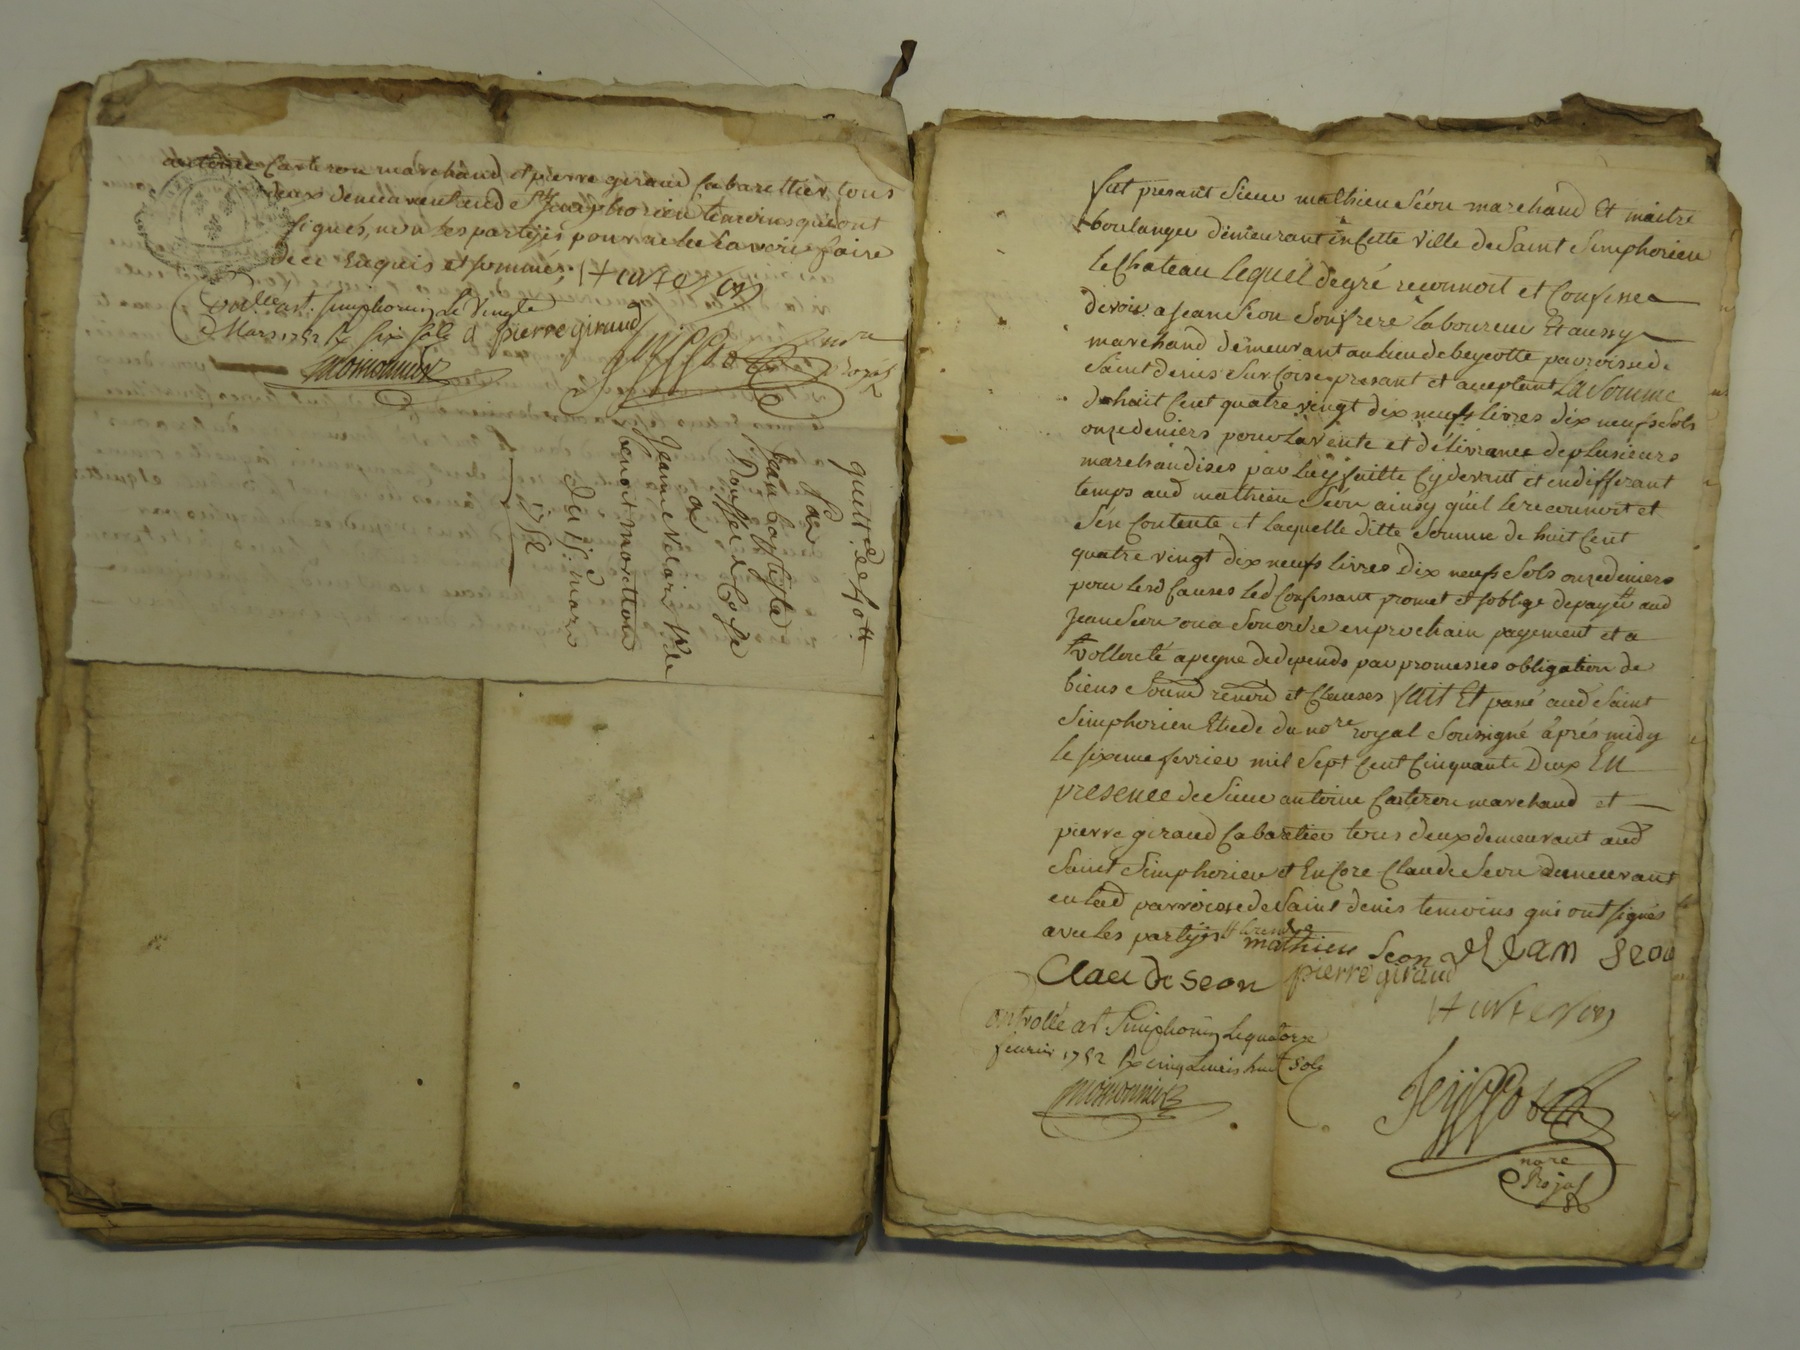 antoine Carteron marchand et pierre giraud Cabarettier tous
deux demeurant aud St Simphorien temoins qui ont
signés, non les partyes pour ne le scavoir faire
de ce Enquis et sommés
Carteron
pierre giraud
st. simphorien Le Vingt
Mars 1752 six sols
moironnier
nore
Royal
quitt.ce de 40tt
Par
Jean baptiste
a
Jeanne V.ve de
benoit
du 15 mars
1752
fut presant Sieur mathieu Séon marchand Et maitre
boulanger demeurant en Cette Ville de Saint Simphorien
le Chateau lequel de gré reconnoit et Confesse
devoir a Jean Seon Son frere laboureur Et aussy
marchand demeurant au lieu de parroisse de
Saint denis Sur Coise presant et aceptant La Somme
de huit Cent quatre vingt dix neufs livres dix neufs Sols
onze deniers pour La vente et délivrance de plusieurs
marchandises par luy faitte Cy devant et en differant
temps aud mathieu Séon ainsy qu'il le reconnoit et
s'en Contente et laquelle ditte Somme de huit Cent
quatre vingt dix neufs livres Dix neufs Sols onze deniers
pour lesd Causes led Confessant promet et s'oblige de payer aud
Jean Seon ou a Son ordre en prochain payement et a
Vollonté a peyne de depends par promesses obligation de
biens Soumd renond et Clauses fait Et passé aud Saint
Simphorien Etude du nore royal Soussigné après midy
le sixeme fevrier mil Sept Cent Cinquante Deux En
presence de Sieur antoine Carteron marchand et
pierre giraud Cabartier tous deux demeurant aud
Saint Simphorien et Encore Claude Seon demeurant
en lad parroisse de Saint denis temoins qui ont signés
avec les partyes
mathieu Seon Jean Seon
Claude Seon pierre giraud
Carteron
Controllé a St Simphorien Le quatorze
fevrier 1752 Rx cinq Livres huit Sols
moironnier
nore
Royal